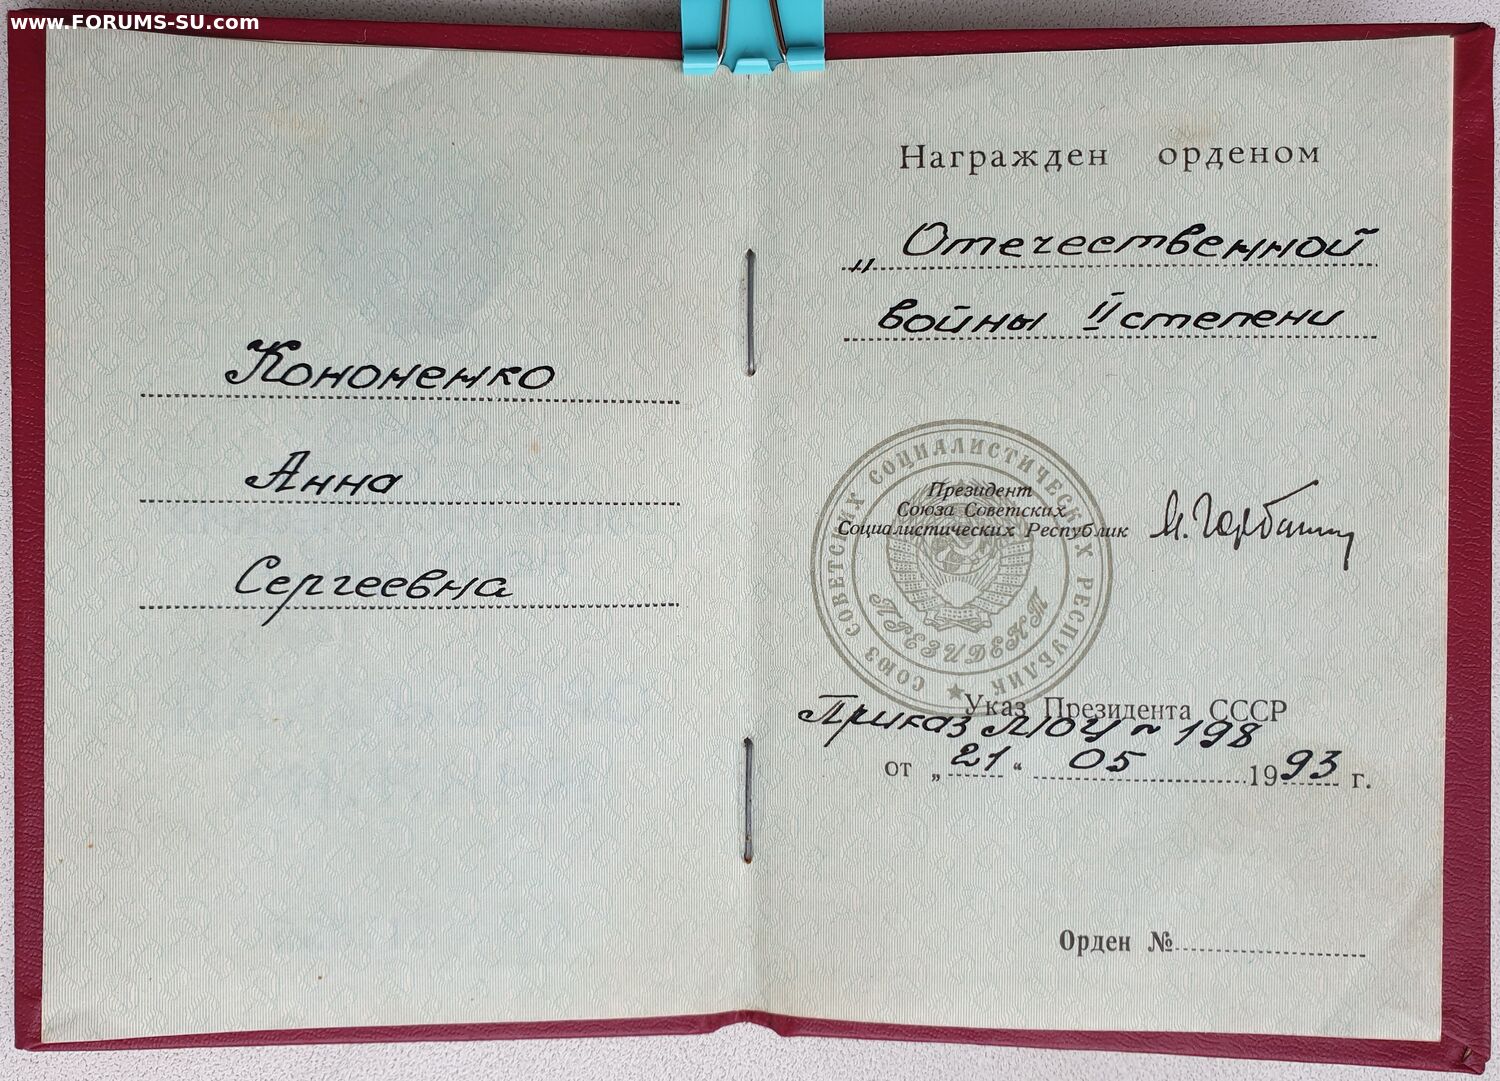 www.FORUMS-SU.com
Кононенко
Анна
Сергеевна
Награжден орденом
„ Отечественной
войны II степени
СОЮЗ СОВЕТСКИХ СОЦИАЛИСТИЧЕСКИХ РЕСПУБЛИК
ПРЕЗИДЕНТ
Президент
Союза Советских
Социалистических Республик
М. Горбачев
Указ Президента СССР
Приказ ЛЮЦ ~ 198
от „ 21 “ 05 1993 г.
Орден №